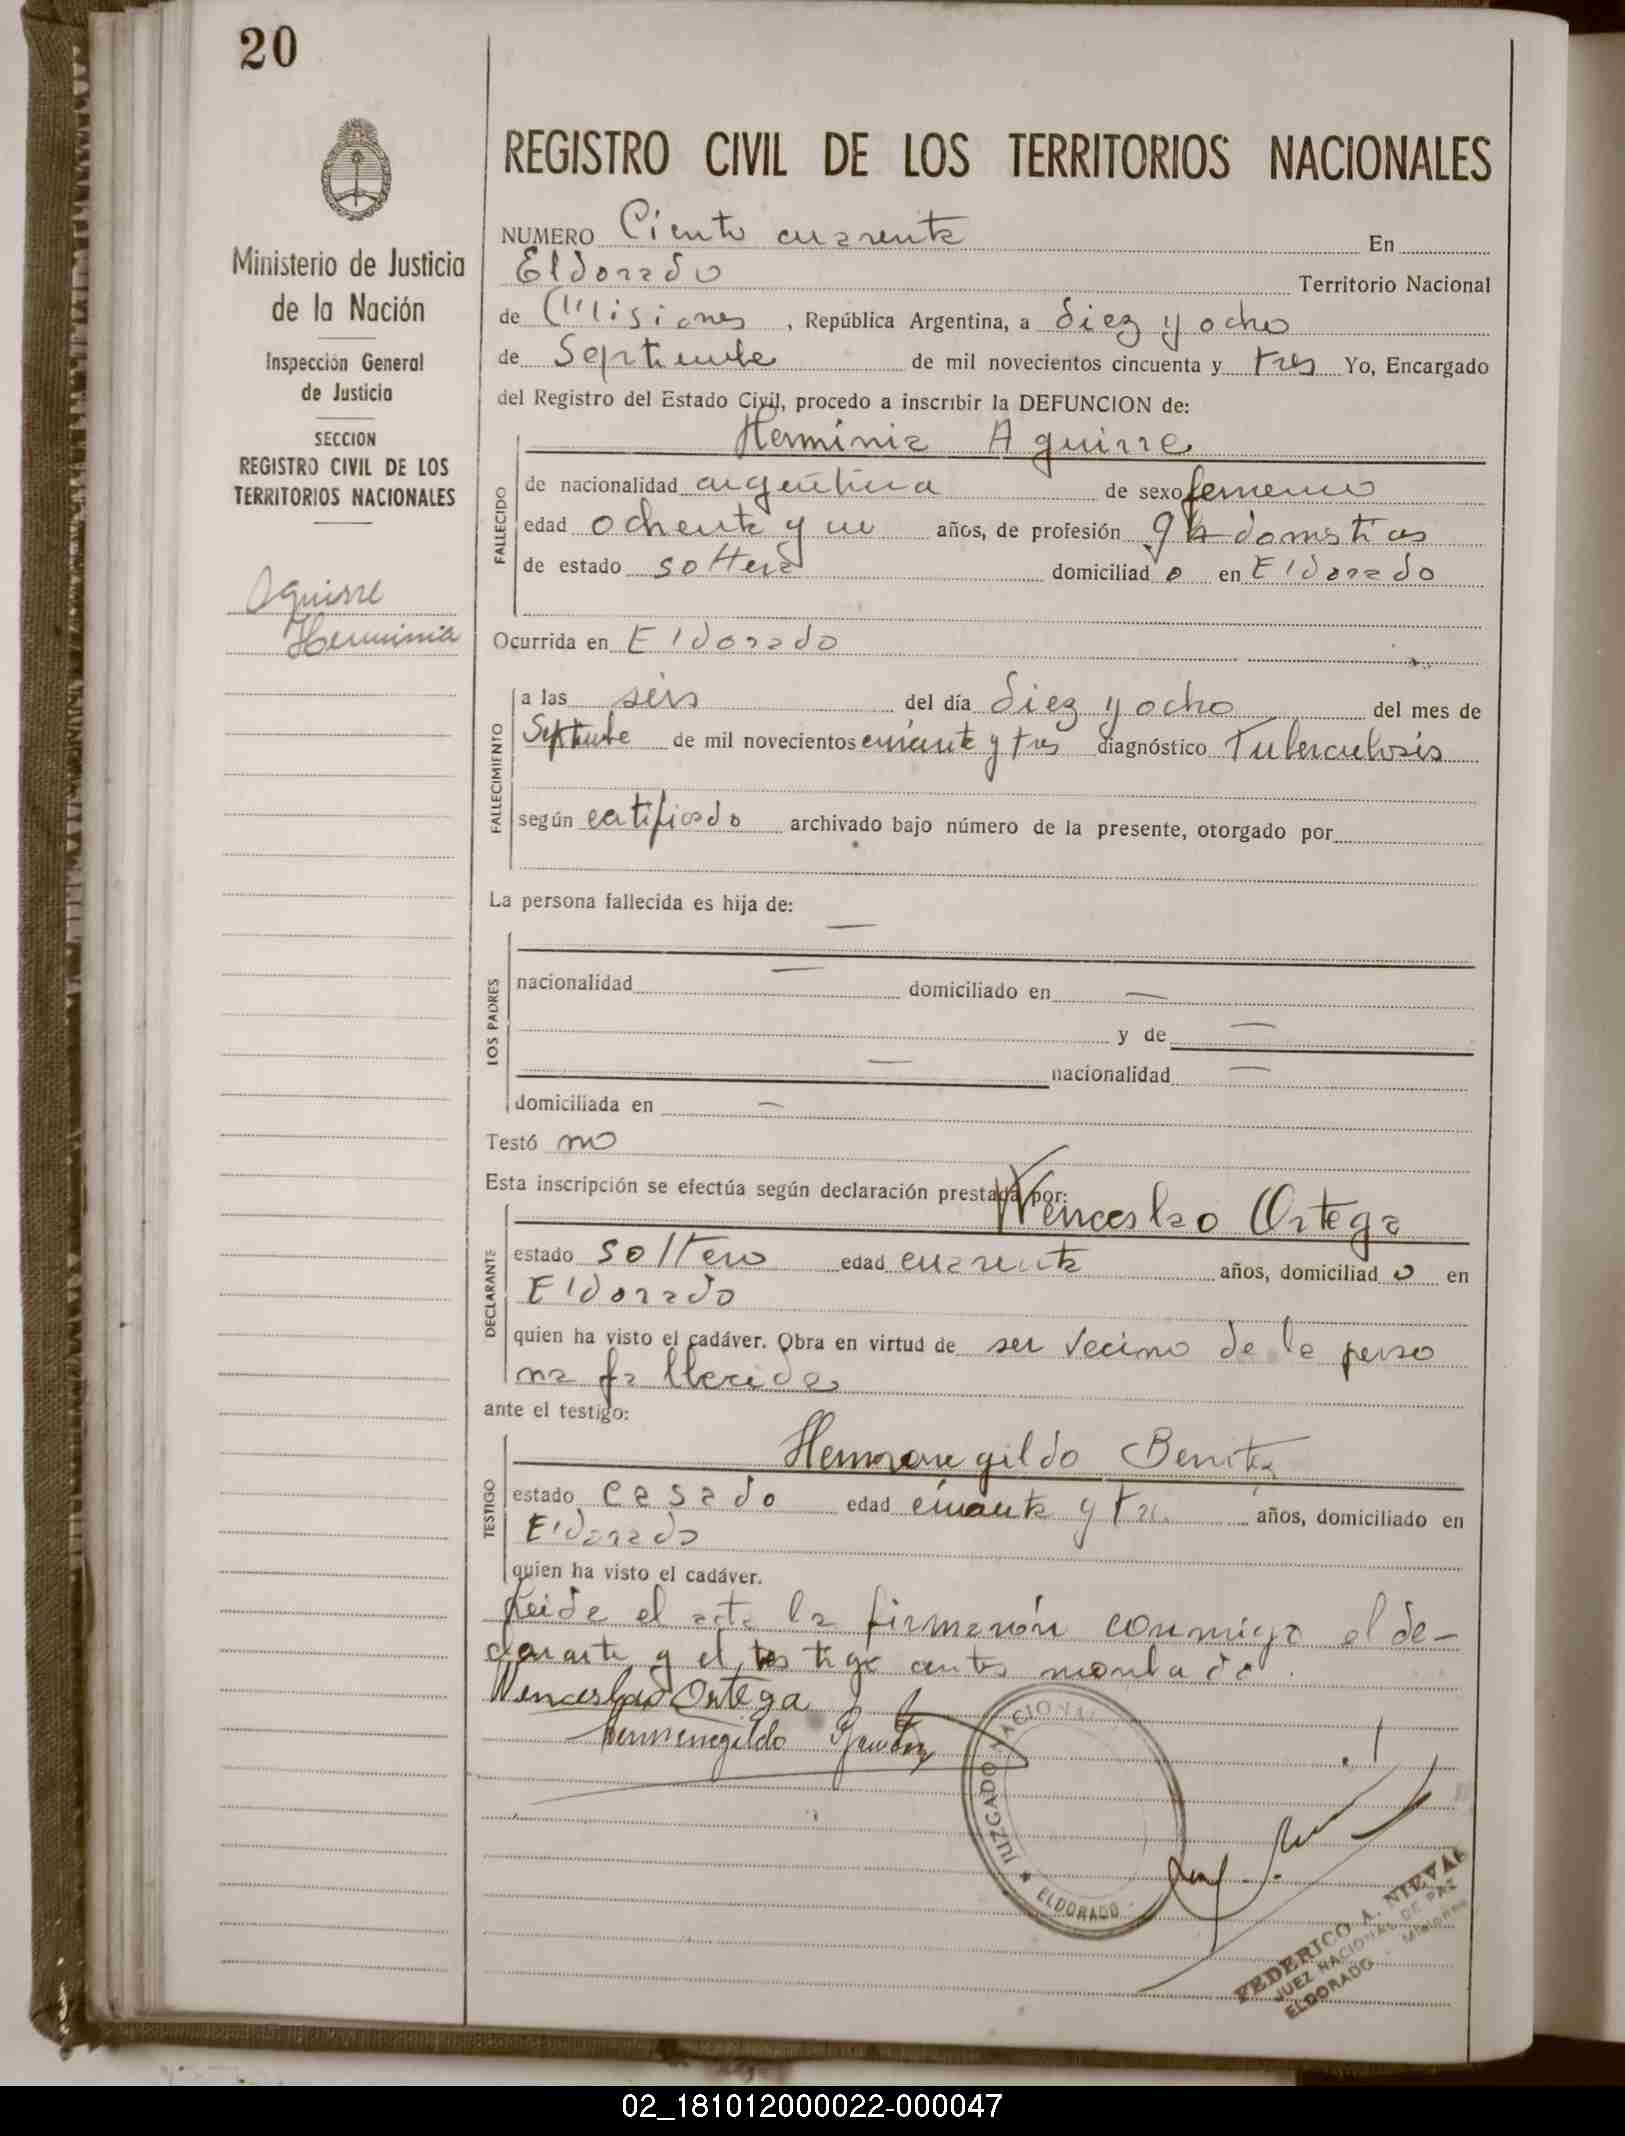 20
REGISTRO CIVIL DE LOS TERRITORIOS NACIONALES
Ministerio de Justicia
de la Nación
Inspección General
de Justicia
SECCION
REGISTRO CIVIL DE LOS
TERRITORIOS NACIONALES
Aguirre
Herminia
NUMERO Ciento cuarenta En
Eldorado Territorio Nacional
de Misiones, República Argentina, a diez y ocho
de Septiembre de mil novecientos cincuenta y tres Yo, Encargado
del Registro del Estado Civil, procedo a inscribir la DEFUNCION de:
Herminia Aguirre
FALLECIDO
de nacionalidad argentina de sexo femenino
edad ochenta y un años, de profesión q h domesticos
de estado soltera domiciliad o en Eldorado
Ocurrida en Eldorado
FALLECIMIENTO
a las seis del día diez y ocho del mes de
Septiembre de mil novecientos cincuenta y tres diagnóstico Tuberculosis
según certificado archivado bajo número de la presente, otorgado por
La persona fallecida es hija de:
—
LOS PADRES
nacionalidad — domiciliado en —
y de —
— nacionalidad —
domiciliada en —
Testó no
Esta inscripción se efectúa según declaración prestada por:
Wenceslao Ortega
DECLARANTE
estado soltero edad cuarenta años, domiciliad o en
Eldorado
quien ha visto el cadáver. Obra en virtud de ser vecino de la perso
na fallecida
ante el testigo:
Hermenegildo Benitez
TESTIGO
estado casado edad cincuenta y tres años, domiciliado en
Eldorado
quien ha visto el cadáver.
Leida el acta la firmarón conmigo el de-
clarante y el testigo antes
Wenceslao Ortega
Hermenegildo Benitez
JUZGADO NACIONAL
ELDORADO
FEDERICO A. NIEVAS
JUEZ NACIONAL DE PAZ
ELDORADO - Misiones
02_181012000022-000047